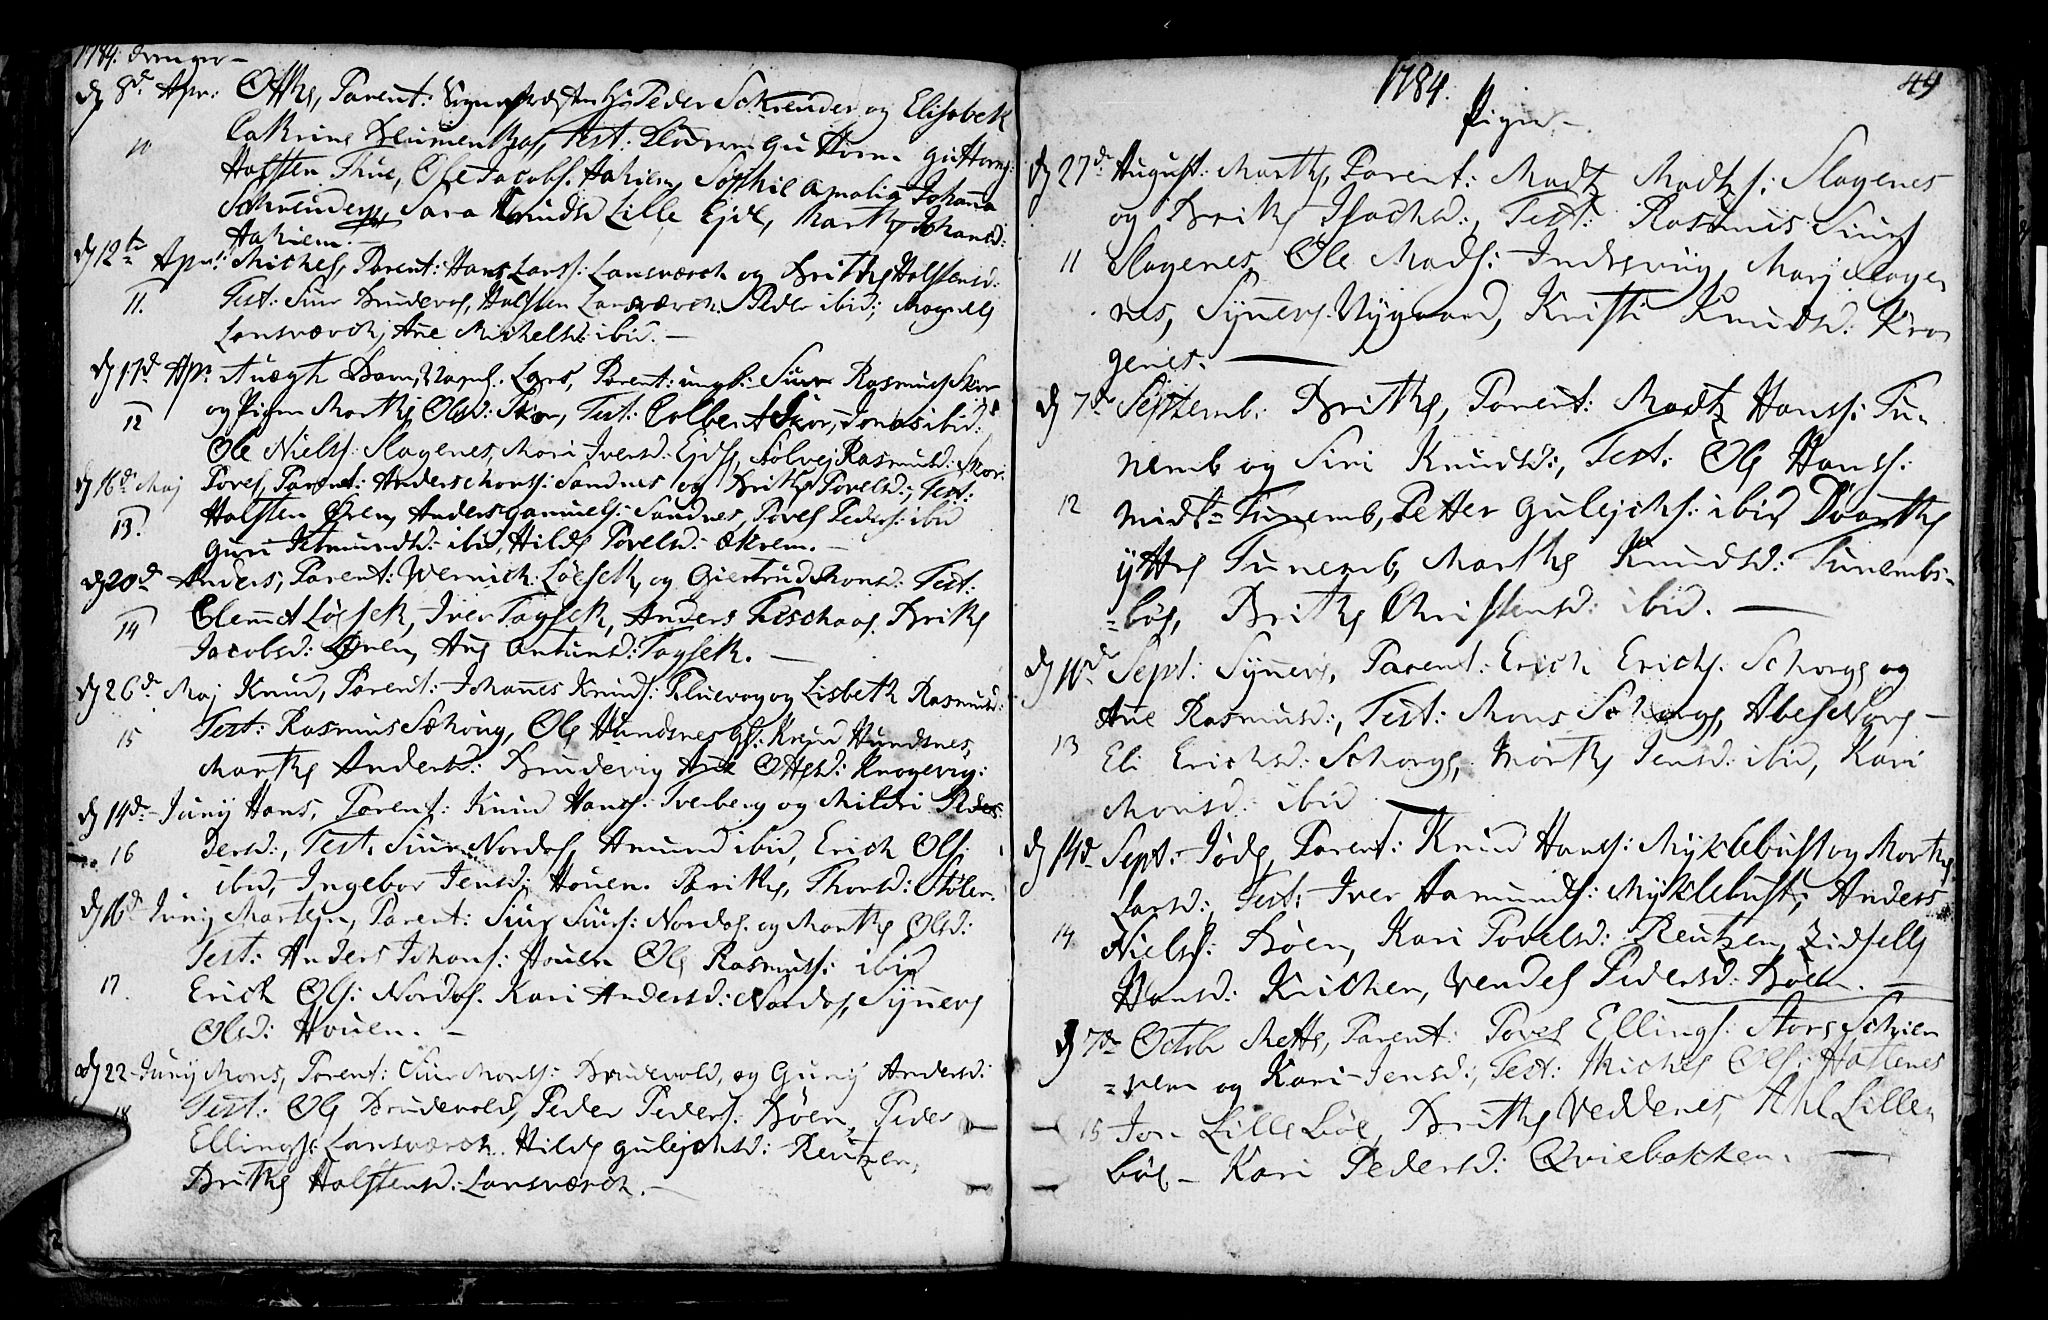 1784. Drenger –
d 8de Apr: Otthe, Parent: Peder Schreuder og Elisabeth
10 Cathrine Test: Horn
Halsten Thue, Ole Jacobs: Hahiem, Sophie Amalia Johanna
Schreuder, Sara Knudsd Lille Ejde, Marthe Johansd:
Hahiem. –
d 12te Apr: Michel, Parent: Hans Larss: Lansværch og Brithe Halstensd:
11. Test: Siur Brudevol, Halsten Lansværch Peder ibid; Magnell
Lansværch, Ane Michelsd: ibid. –
d 17de Apr: Uægte Barn, Lars, Parent: ungk: Siur Rasmuss Skor
12 og Pigen Marthe Olsd: Skor, Test: Colbent Skor, Jonas ibid:
Ole Nielss: Slagenes, Mari Iversd: Ejde, Sølvej Rasmusd: Skor.
d 16de Maj Povel, Parent: Anders Monss: Sandnes og Brithe Povelsd:, Test:
13. Halsten Øren, Anders Samuels: Sandnes, Povel Peders: ibid
Guri Asmundsd: ibid, Hilde Povelsd: Ekrem. –
d 20de Anders, Parent: Wernich Løeseth, og Giertrud Monsd: Test:
14 Clemet Løeseth, Iver Tagseth, Anders Brithe
Jacobsd: Øren, Ane Antunsd: Tagseth. –
d 26de Maj Knud, Parent: Johannes Knuds: Fluevog og Lisbeth Rasmusd:
15 Test: Rasmus Sæhoug, Ole Hundsnes gl: Knud Hundsnes,
Marthe Andersd: Brudevig Ane Ottesd: Knogevig:
d 14de Junij Hans, Parent: Knud Hanss: Tverberg og Mildri Peder
16 dersd:, Test: Siur Nordal, Amund ibid, Erich Ols:
ibid, Ingebor Jensd: Houen. Brithe, Thorsd: Støler.
d 16de Junij Marthe, Parent: Siur Siurs: Nordal og Marthe Olsd:
Test: Anders Johans: Houen Ole Rasmuss: ibid
17. Erich Ols: Nordal. Kari Andersd: Nordal, Synneve
Olsd: Houen. –
d 22 Junij Mons, Parent: Siur Monss: Brudevold, og Guri Andersd:
18 Test: Ole Brudevold, Peder Peders: Bøen, Peder
Ellings: Lansværch. Hilde Gulejchsd: Reutzen,
Brithe Halstensd: Lansværch. –
1784. 44
Piger. –
d 27de August: Marthe, Parent: Madtz Madtzs: Slagenes
og Brithe Isachsd:, Test: Rasmus Siurs
11 Slagenes, Ole Mads: Indresvig, Mari Slage
nes, Synneve Nygaard, Kristi Knudsd: Kra
genes. –
d 7de Septemb: Brithe, Parent: Madtz Hanss: Tu-
nemb og Siri Knudsd:, Test: Ole Hanss:
12 midt= Tunemb, Petter Gulejchs: ibid Dorthe
ytthe Tunemb, Marthe Knudsd: Tunembs-
=bøe, Brithe Christensd: ibid. –
d 10de Sept: Synneve, Parent: Erich Erichs: Schorge og
Ane Rasmusd:, Test: Mons Schorge, Abel
13 Eli Erichsd: Schorge, Marthe Jensd: ibid, Kari
Monsd: ibid –
d 14de Sept: Jøde, Parent: Knud Hanss: Myklebust og Marthe
Larsd:, Test: Iver Aamunds: Myklebust, Anders
14 Nielss: Bøen, Kari Povelsd: Reutzen, Zidselle
Hansd: Kricken, Vendel Pedersd: Bøen. –
d 7de Octobr Mette, Parent: Povel Ellings: Store Schier
=vem og Kari Jensd:, Test: Michel Ols: Hattenes
15 Jon Lille bøe, Brithe Veddenes, Ahl Lille
bøe – Kari Pedersd: Qviebakken. –